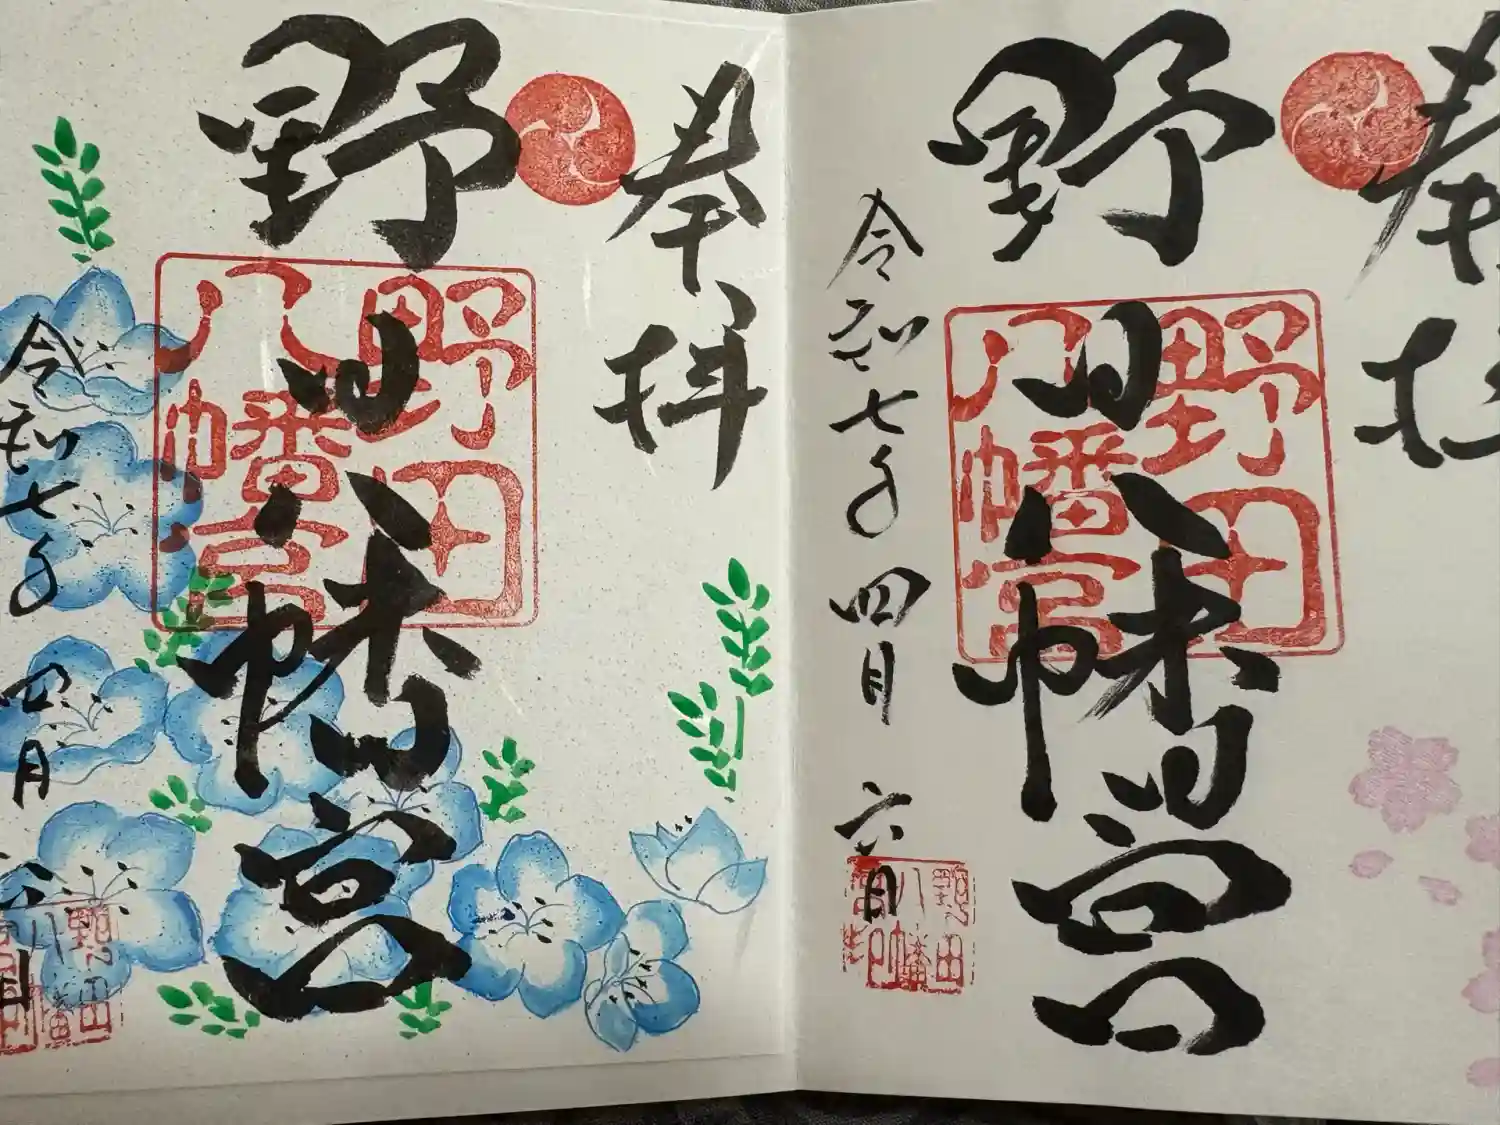 奉拝
野田八幡宮
野田
八幡宮
令和七年四月六日
野田
八幡
奉拝
野田八幡宮
野田
八幡宮
令和七年四月六日
野田
八幡